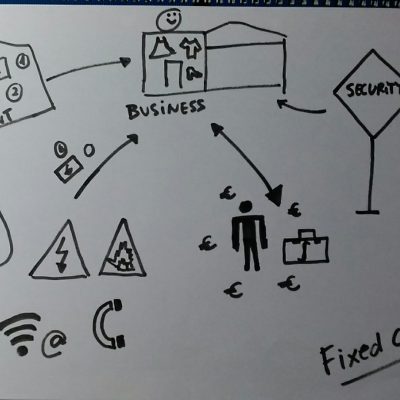 1
2
NT
BUSINESS
SECURITY
€ €
€ €
€ €
@
Fixed C